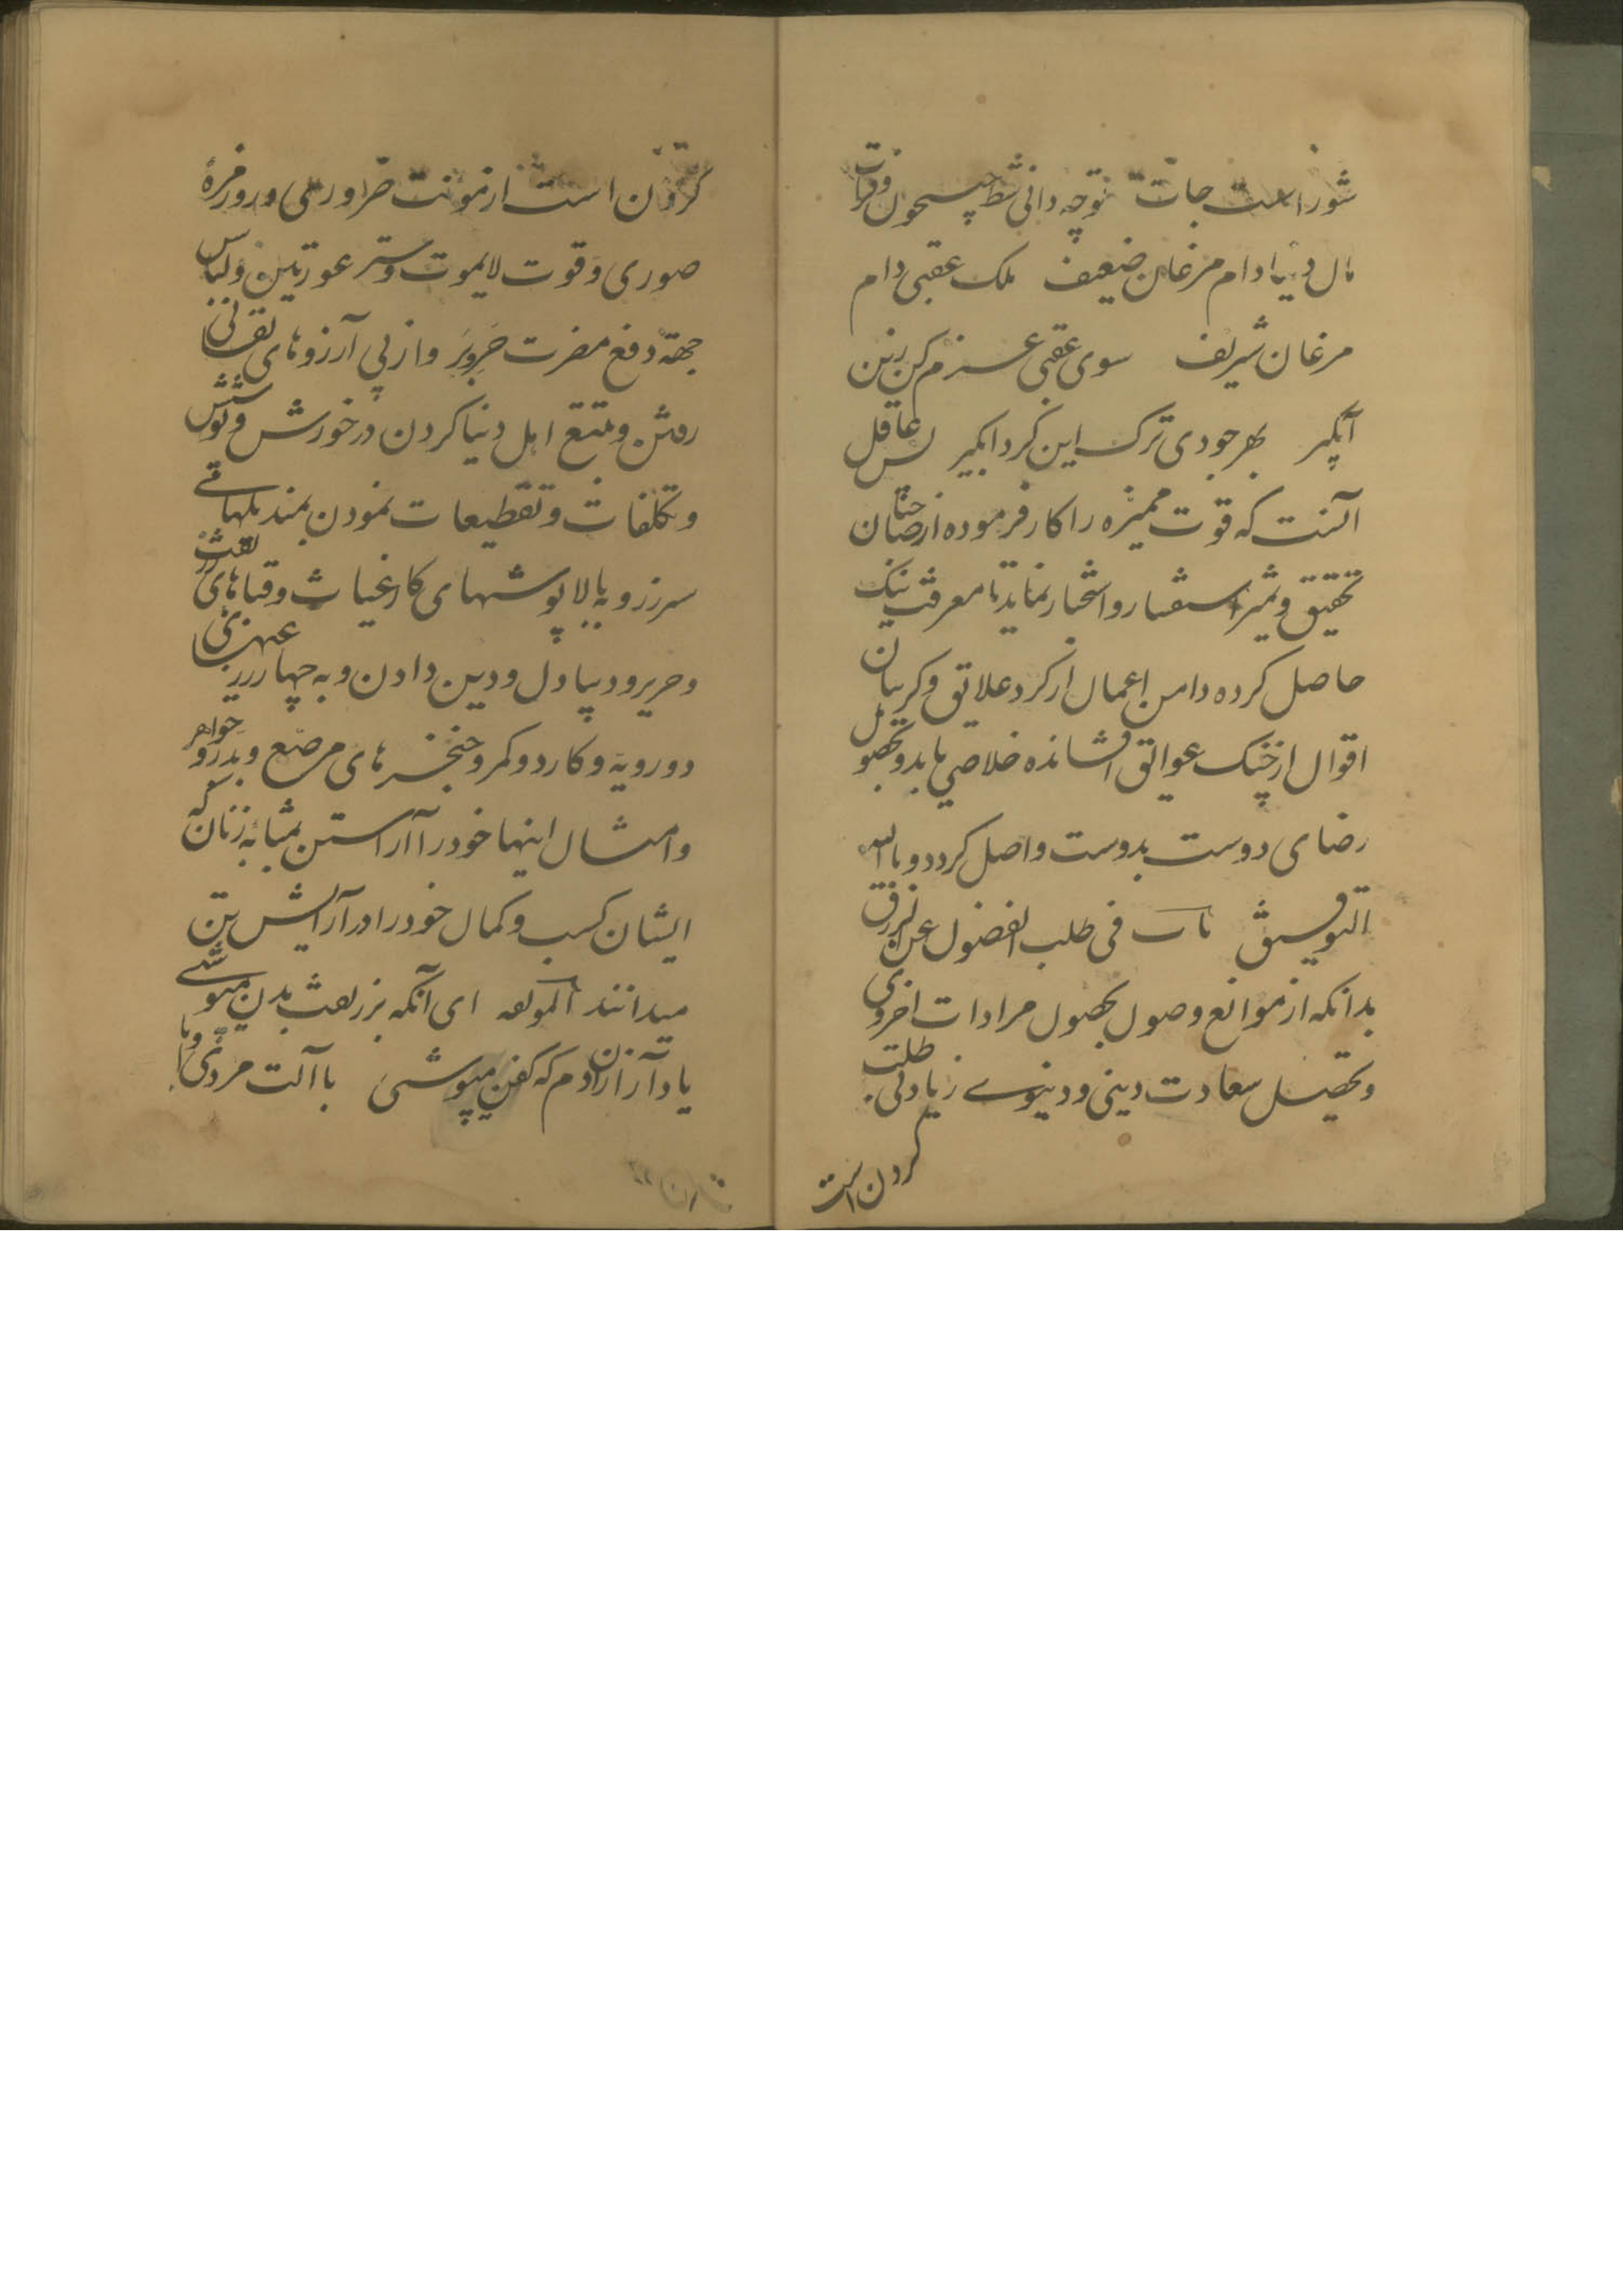 شور است جات تو چه دانی شط جیحون و فرات
مال دنیا دام مرغان ضعیف ملک عقبی دام
مرغان شریف سوی عقبی عزم کن زین
آبگیر بهر جودی ترک این گرداب گیر پس عاقل
آنست که قوت ممیزه را کار فرموده از صاحبان
تحقیق و تمیز استفسار و استخبار نماید تا معرفت نیک
حاصل کرده دامن اعمال از گرد علایق و گریبان
اقوال از چنگ عوایق افشانده خلاصی یابد و بحصول
رضای دوست بدوست واصل گردد و بالله
التوفیق باب فی طلب الفضول عن الرزق
بدانکه از موانع وصول بحصول مرادات اخروی
و تحصیل سعادت دینی و دنیوی زیادتی طلب
کردن است
کردن است از مونت ضروری و روزمرهٔ
صوری و قوت لایموت و ستر عورتین و لباس
جهة دفع مضرت حر و برد و از پی آرزوهای نفسانی
رفتن و تتبع اهل دنیا کردن در خورش و پوشش
و تکلفات و تقطیعات نمودن بمندیلهای
سرزر و به بالاپوشهای کار غیاث و قباهای زربفت
و حریر و دیبا دل و دین دادن و به چهار زرعی
دورویه و کارد و کمر و خنجرهای مرصع و بدر و جواهر
و امثال اینها خود را آراستن بمثابهٔ زنان که
ایشان کسب و کمال خود را در آرایش تن
میدانند لمولفه ای آنکه بزربفت بدن میپوشی
یاد آر ازان دم که کفن میپوشی با آلت مردی و با